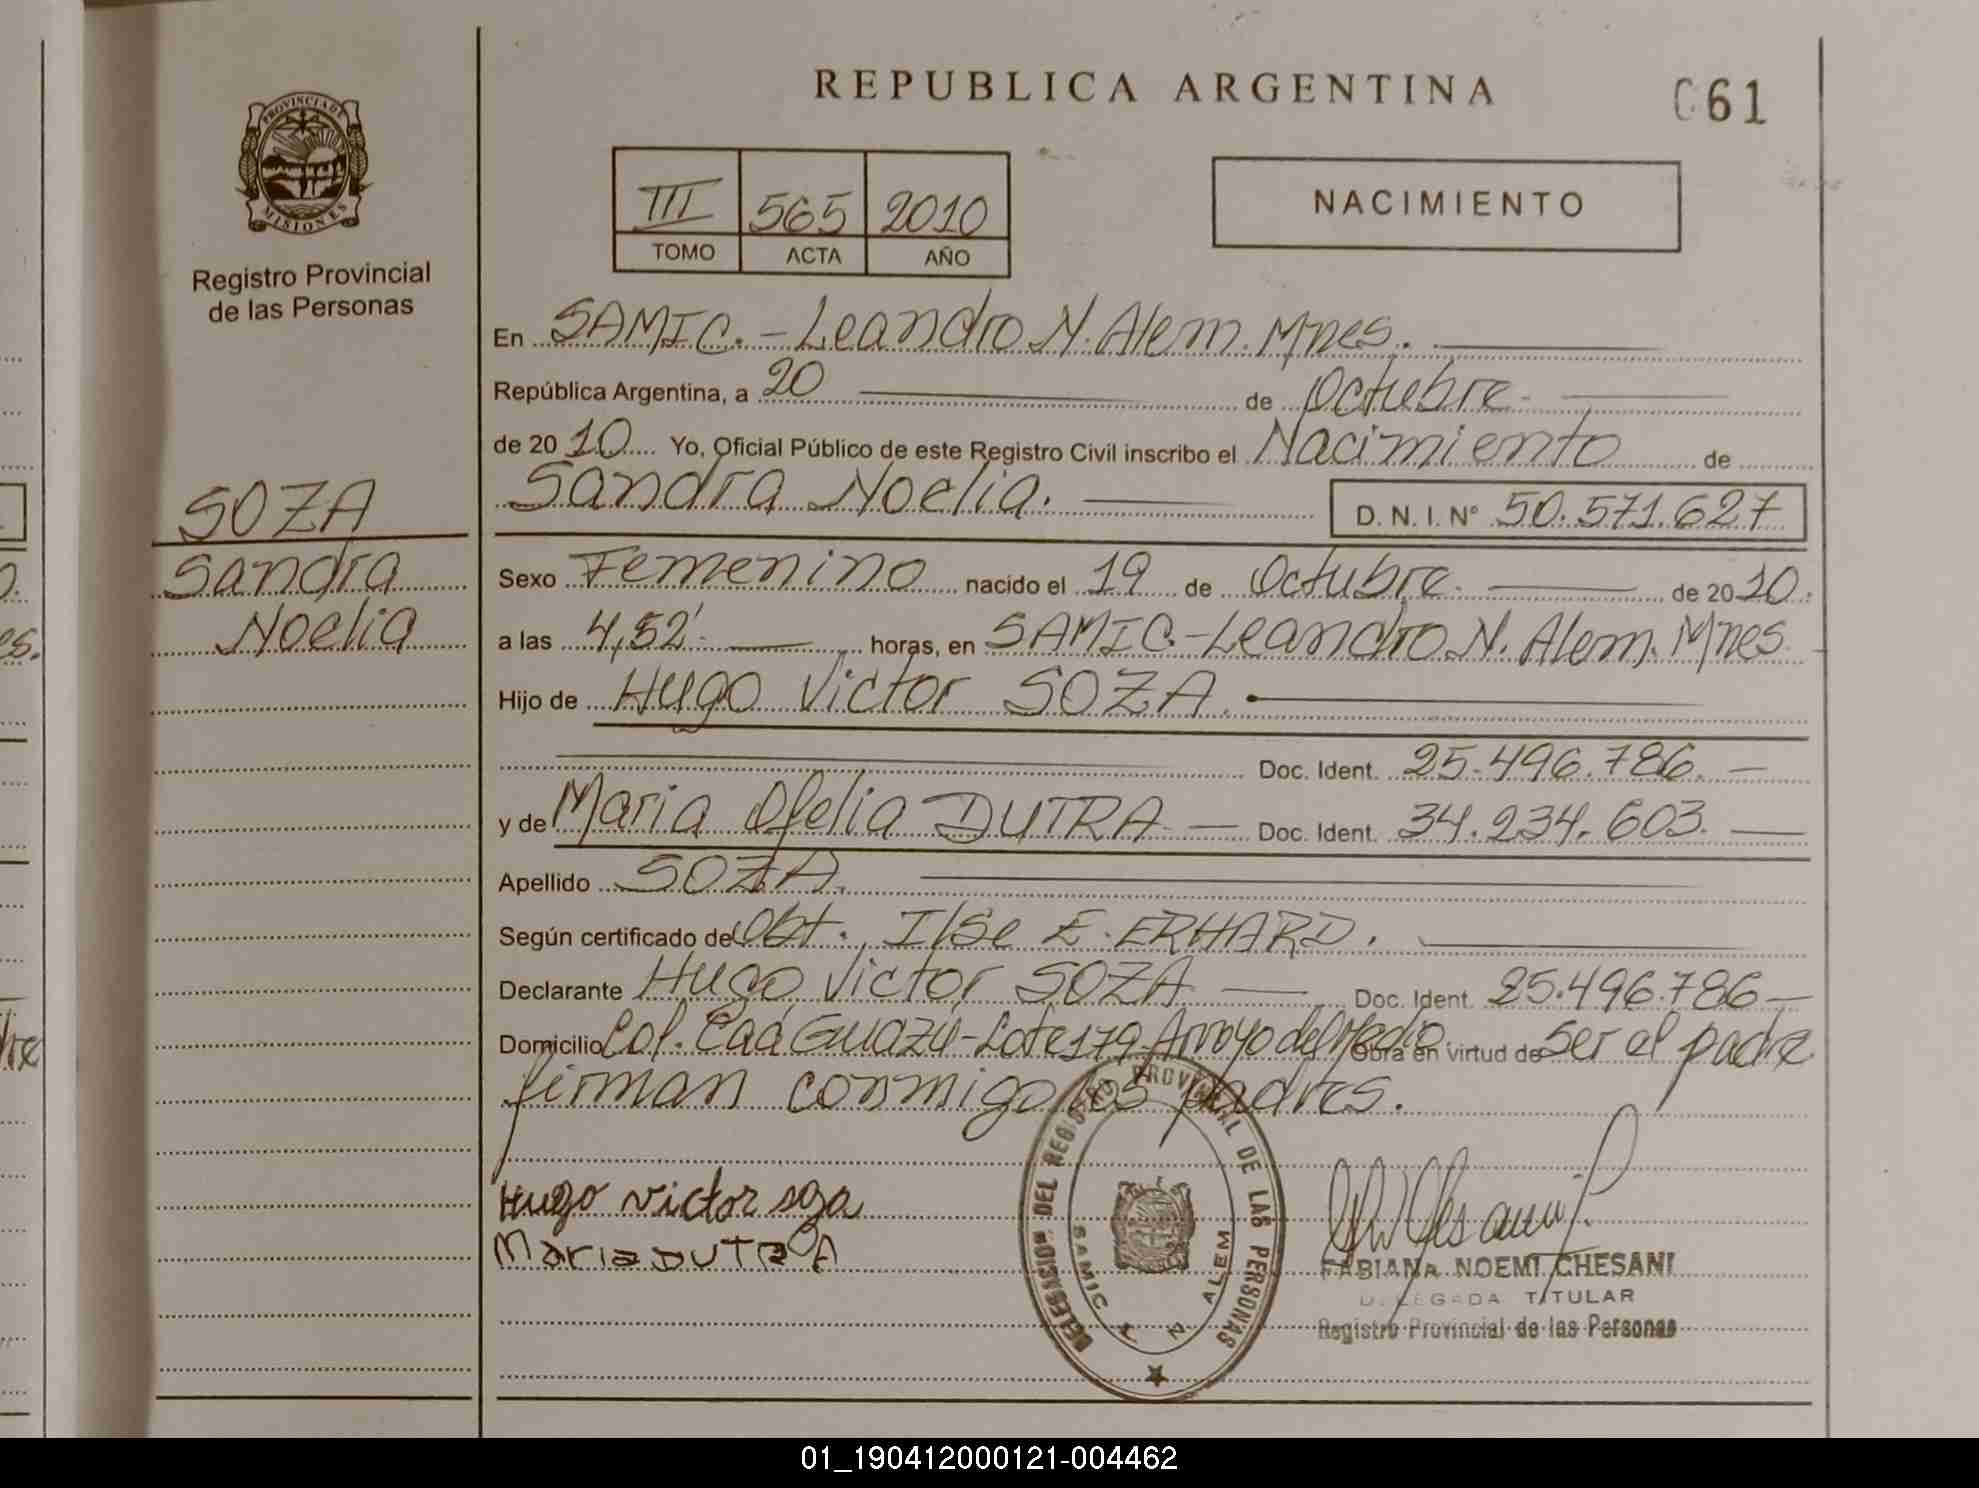 REPUBLICA ARGENTINA
061
PROVINCIA DE
MISIONES
Registro Provincial
de las Personas
III 565 2010
TOMO ACTA AÑO
NACIMIENTO
En SAMIC.-Leandro N. Alem. Mnes.
República Argentina, a 20 de Octubre
de 2010 Yo, Oficial Público de este Registro Civil inscribo el Nacimiento de
Sandra Noelia. D. N. I. Nº 50.571.627
SOZA
Sandra
Noelia
Sexo Femenino nacido el 19 de Octubre de 2010.
a las 4,52' horas, en SAMIC-Leandro N. Alem. Mnes.
Hijo de Hugo Victor SOZA.
Doc. Ident. 25.496.786.
y de Maria Ofelia DUTRA Doc. Ident. 34.234.603.
Apellido SOZA.
Según certificado de Obt. Ilse E. ERHARD.
Declarante Hugo Victor SOZA Doc. Ident. 25.496.786
Domicilio Col. Caá Guazú-Lote 179 Arroyo del Medio. Obra en virtud de ser el padre
firman conmigo los padres.
Hugo victor soza
Maria DUTRA
DELEGACION DEL REGISTRO PROVINCIAL DE LAS PERSONAS
SAMIC L N ALEM
FABIANA NOEMI CHESANI
DELEGADA TITULAR
Registro Provincial de las Personas
01_190412000121-004462